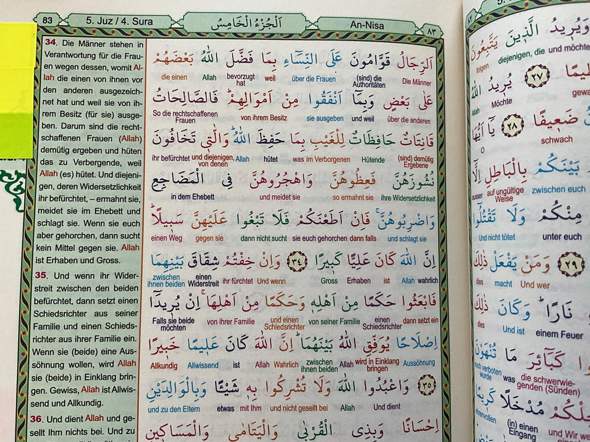 83 5. Juz / 4. Sura اَلْجُزْءُ الْخَامِسُ An-Nisa ٨٣
34. Die Männer stehen in
Verantwortung für die Frau-
en wegen dessen, womit Al-
lah die einen von ihnen vor
den anderen ausgezeich-
net hat und weil sie von ih-
rem Besitz (für sie) ausge-
ben. Darum sind die recht-
schaffenen Frauen (Allah)
demütig ergeben und hüten
das zu Verbergende, weil
Allah (es) hütet. Und diejeni-
gen, deren Widersetzlichkeit
ihr befürchtet, – ermahnt sie,
meidet sie im Ehebett und
schlagt sie. Wenn sie euch
aber gehorchen, dann sucht
kein Mittel gegen sie. Allah
ist Erhaben und Gross.
35. Und wenn ihr Wider-
streit zwischen den beiden
befürchtet, dann setzt einen
Schiedsrichter aus seiner
Familie und einen Schieds-
richter aus ihrer Familie ein.
Wenn sie (beide) eine Aus-
söhnung wollen, wird Allah
sie (beide) in Einklang brin-
gen. Gewiss, Allah ist Allwis-
send und Allkundig.
36. Und dient Allah und ge-
sellt Ihm nichts bei. Und zu
اَلرِّجَالُ قَوَّامُونَ عَلَى النِّسَٓاءِ بِمَا فَضَّلَ اللّٰهُ بَعْضَهُمْ
die einen Allah bevorzugt hat weil über die Frauen (sind) die Autoritäten Die Männer
عَلٰى بَعْضٍ وَبِمَٓا اَنْفَقُوا مِنْ اَمْوَالِهِمْ فَالصَّالِحَاتُ
So die rechtschaffenen Frauen von ihrem Besitz sie ausgeben und weil über die anderen
قَانِتَاتٌ حَافِظَاتٌ لِلْغَيْبِ بِمَا حَفِظَ اللّٰهُ وَالّٰت۪ي تَخَافُونَ
ihr befürchtet und diejenigen, von denen Allah hütet was im Verborgenen Hütende (sind) demütig Ergebene
نُشُوزَهُنَّ فَعِظُوهُنَّ وَاهْجُرُوهُنَّ فِي الْمَضَاجِعِ
in dem Ehebett und meidet sie so ermahnt sie ihre Widersetzlichkeit
وَاضْرِبُوهُنَّ فَاِنْ اَطَعْنَكُمْ فَلَا تَبْغُوا عَلَيْهِنَّ سَب۪يلًا
einen Weg gegen sie dann nicht sucht sie euch gehorchen dann falls und schlagt sie
اِنَّ اللّٰهَ كَانَ عَلِيًّا كَب۪يرًا ٣٤ وَاِنْ خِفْتُمْ شِقَاقَ بَيْنِهِمَا
zwischen ihnen beiden einen Widerstreit ihr fürchtet Und wenn Gross Erhaben ist Allah wahrlich
فَابْعَثُوا حَكَمًا مِنْ اَهْلِه۪ وَحَكَمًا مِنْ اَهْلِهَا اِنْ يُر۪يدَٓا
Falls sie beide möchten von ihrer Familie und einen Schiedsrichter von seiner Familie einen Schiedsrichter dann setzt ein
اِصْلَاحًا يُوَفِّقِ اللّٰهُ بَيْنَهُمَا اِنَّ اللّٰهَ كَانَ عَل۪يمًا خَب۪يرًا
Allkundig Allwissend ist Allah Wahrlich zwischen ihnen beiden Allah wird in Einklang bringen Aussöhnung
٣٥ وَاعْبُدُوا اللّٰهَ وَلَا تُشْرِكُوا بِه۪ شَيْـًٔا وَبِالْوَالِدَيْنِ
und zu den Eltern etwas mit Ihm und nicht gesellt bei Allah Und dient
اِحْسَانًا وَبِذِي الْقُرْبٰى وَالْيَتَامٰى وَالْمَسَاك۪ينِ
وَيُر۪يدُ الَّذ۪ينَ يَتَّبِعُونَ
folgen diejenigen, die und möchte
٢٧ يُر۪يدُ اللّٰهُ
Allah Möchte
ضَع۪يفًا ٢٨ يَٓا اَيُّهَا
schwach
بَيْنَكُمْ بِالْبَاطِلِ اِلَّٓا
auf ungültige Weise zwischen euch
مِنْكُمْ وَلَا تَقْتُلُٓوا
Und nicht tötet unter euch
٢٩ وَمَنْ يَفْعَلْ ذٰلِكَ
das macht Und wer
نَارًا وَكَانَ ذٰلِكَ
das Und ist einem Feuer
كَبَٓائِرَ مَا تُنْهَوْنَ
was die schwerwiegenden (Sünden)
مُدْخَلًا
(in) einen Eingang